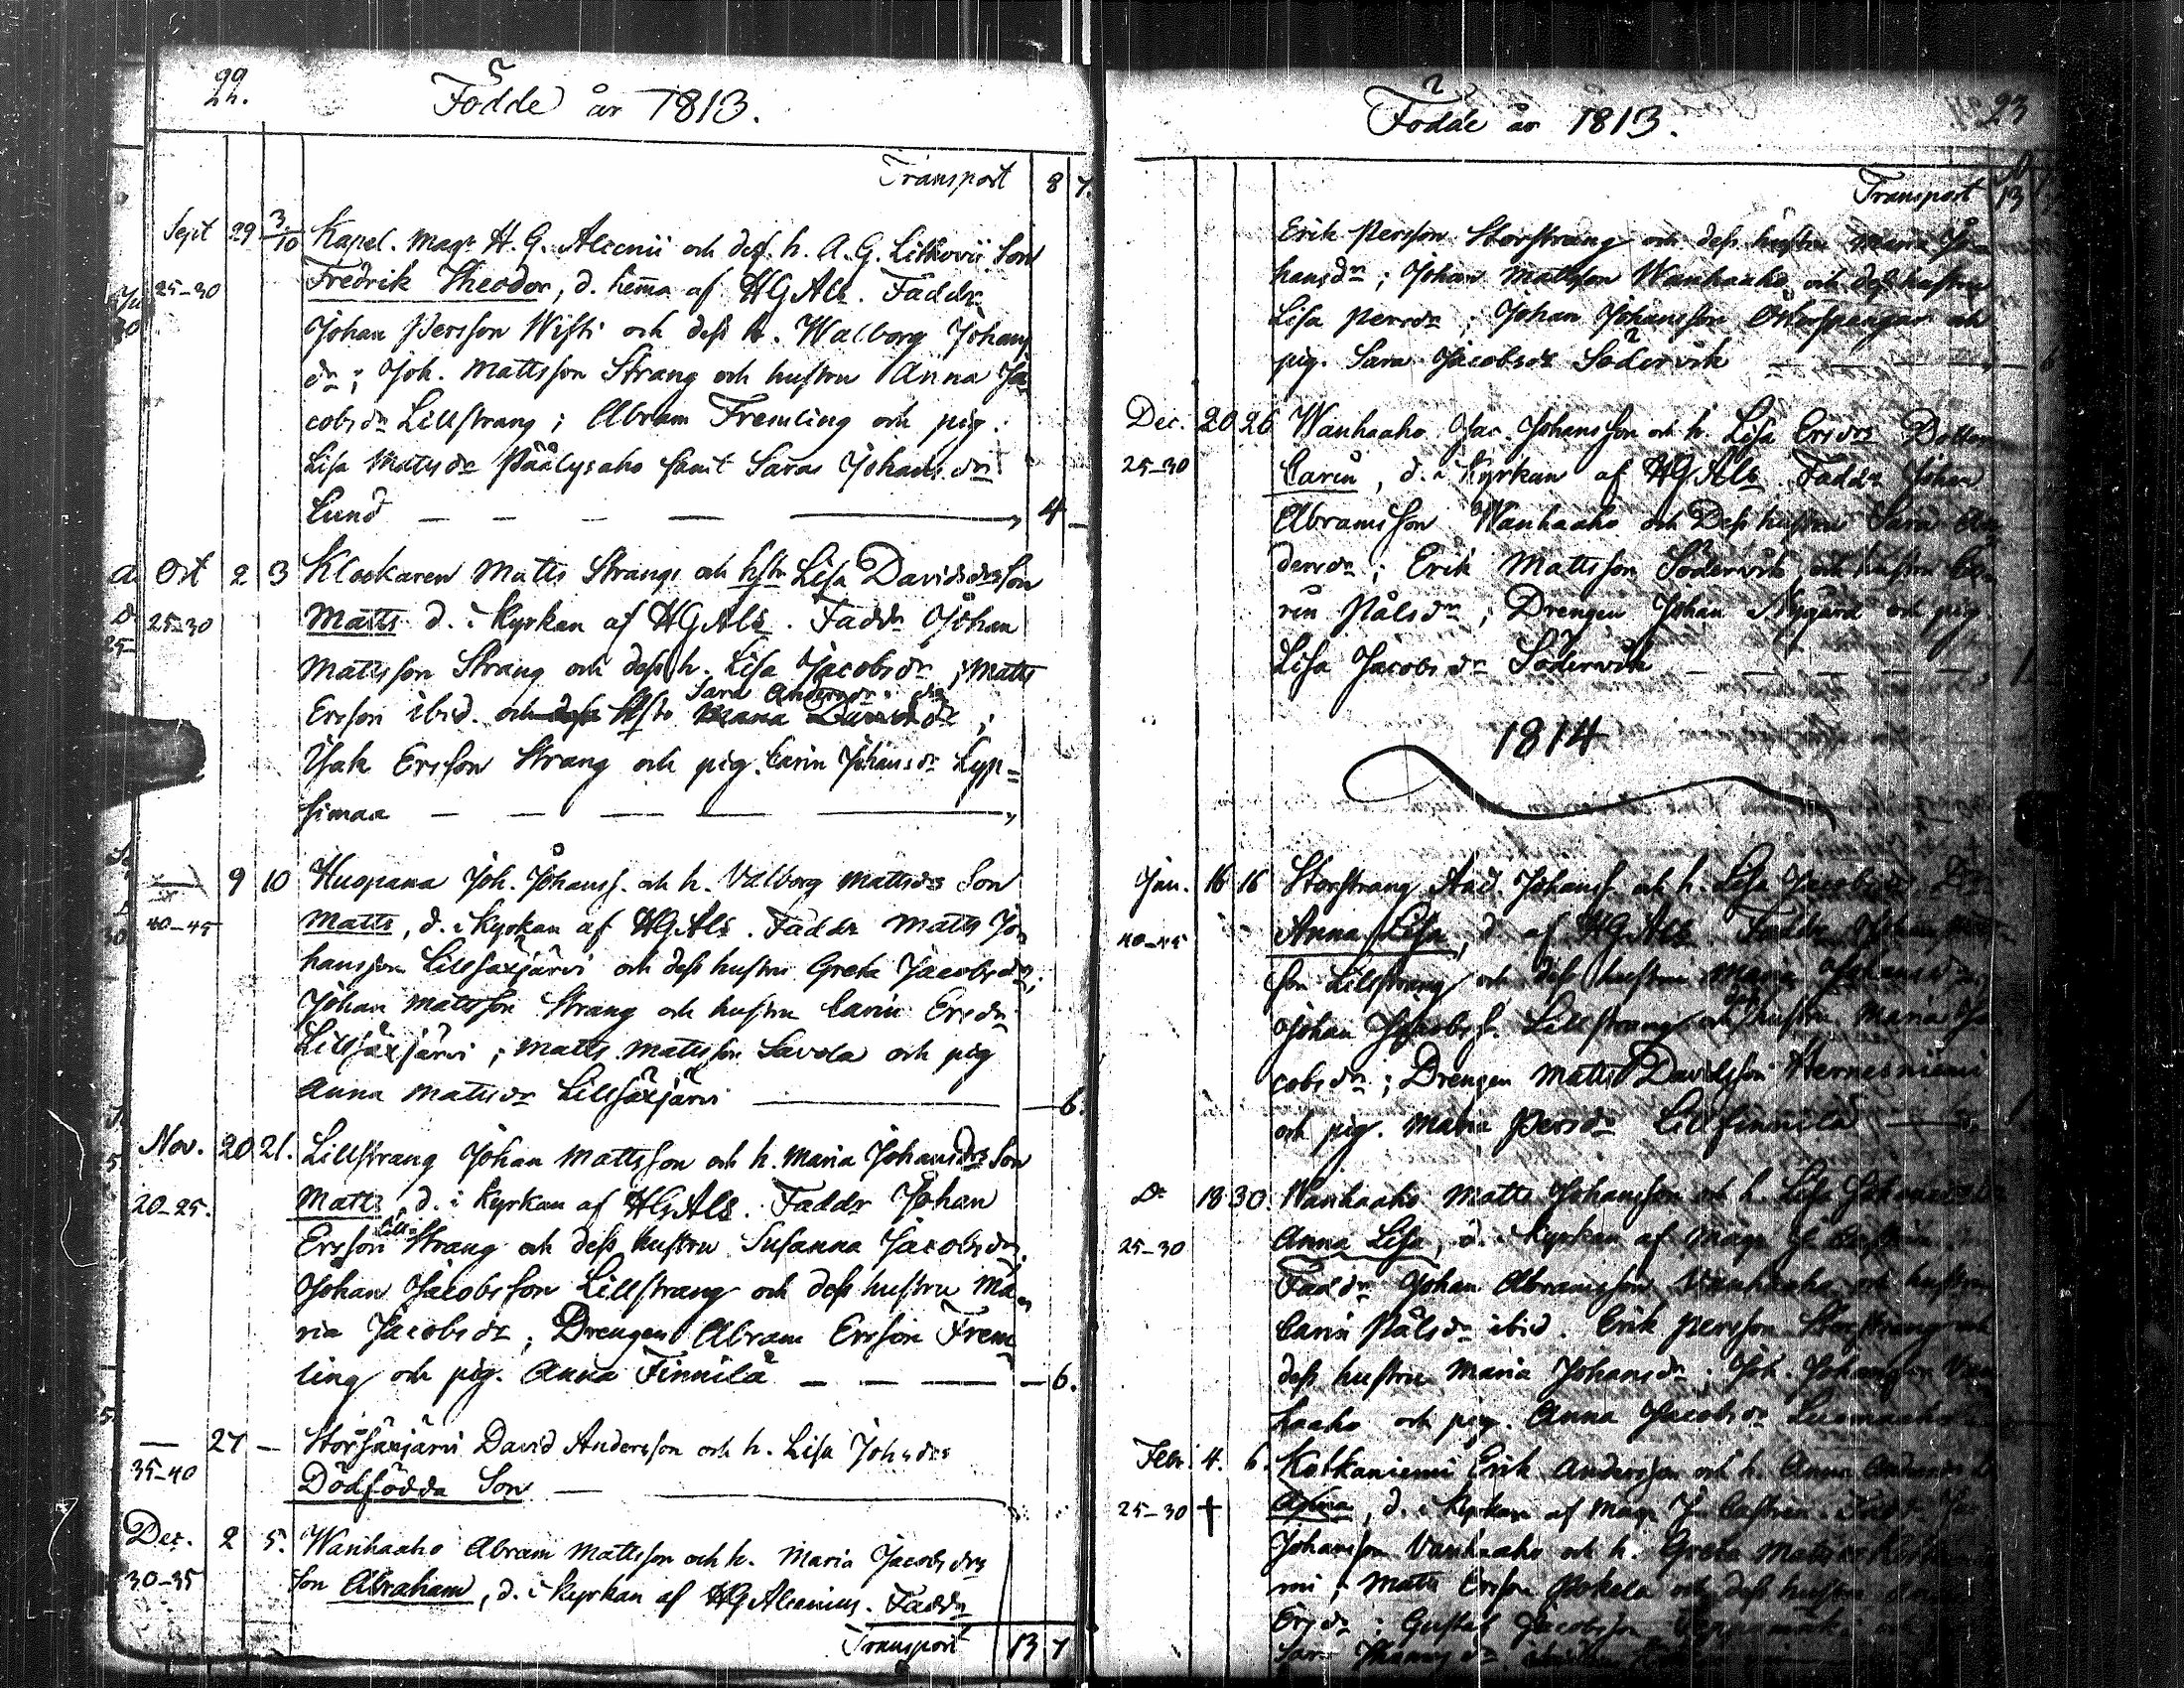 22.
Födde år 1813.
Transport 8 7.
Sept 29 3/10 Kapel. Mag: H. G. Alcenii och dess h. A. G. Litkovii Son
25-30 Fredrik Theodor, d. hema af HGAls. Faddr
Johan Persson Wisti och dess h. Walborg Johans
dr; Joh. Mattsson Strang och hustru Anna Ja
cobsdr Lillstrang; Abram Fremling och pig.
Lisa Matsdr Päälysaho samt Saras Johansdr
Lund — — — — — 4 —
Oct 2 3 Klockaren Matts Strangs och hstr Lisa Davidsdrs Son
25-30 Matts d. i Kyrkan af HGAls. Faddr Johan
Mattsson Strang och dess h. Lisa Jacobsdr; Matts
Sara Andersdr
Ersson ibid. och hstr
Isak Ersson Strang och pig. Carin Johansdr Lyp=
simaa — — — — —
— 9 10 Huopana Joh. Johanss. och h. Valborg Mattsdrs Son
40-45 Matts, d. i Kyrkan af HGAls. Faddr Matts Jo
hansson Lillsäxjärvi och dess hustru Greta Jacobsdr;
Johan Mattsson Strang och hustru Carin Ersdr
Lillsäxjärvi; Matts Mattsson Savola och pig
Anna Matsdr Lillsäxjärvi — — 6.
Nov. 20 21. Lillstrang Johan Mattsson och h. Maria Johansdrs Son
20-25. Matts, d. i Kyrkan af HGAls. Faddr Johan
Ersson Lill Strang och dess hustru Susanna Jacobsdr.
Johan Jacobsson Lillstrang och dess hustru Ma=
ria Jacobsdr; Drengen Abram Ersson Frem
ling och pig. Anna Finnilä — — — — 6.
— 27 — Storsäxjärvi David Andersson och h. Lisa Johsdrs
35-40 Dödfödda Son —
Dec. 2 5. Wanhaaho Abram Mattsson och h. Maria Jacobsdrs
30-35 Son Abraham, d. i Kyrkan af HGAlcenius. Faddr
Transport 13 7
23
Födde år 1813.
Transport 13
Erik Persson Storstrang och dess hustru Maria Jo=
hansdr; Johan Mattsson Wanhaaho och dess hustru
Lisa Persdr; Johan Johansson och
pig. Sara Jacobsdr Södervik — — — 6
Dec. 20 26 Wanhaaho Jac. Johansson och h. Lisa Ersdrs Dotter
25-30 Carin, d. i Kyrkan af HGAls. Faddr Johan
Abramsson Wanhaaho och Dess hustru Sara An
dersdr; Erik Mattsson Södervik och hustru Ca=
rin Pålsdr; Drengen Johan Nygård och pig.
Lisa Jacobsdr Södervik — — — —
1814
Jan. 16 16 Storstrang And. Johanss. och h. Lisa Jacobsdrs
40-45 Anna Lisa, d. af HGAls. Faddr Johan
son Lillstrang och dess hustru Maria Johansdr
Johan Jacobss. Lillstrang och dess hustru Maria Ja
cobsdr; Drengen Matts Davidsson Hernesniemi
och pig. Maria Persdr Lillfinnilä —
Do 18 30. Wanhaaho Matts Johansson och h. Lisa
25-30 Anna Lisa, d. i Kyrkan af Mag:
Faddr Johan Abramsson Wanhaaho och hustru
Carin Pålsdr ibid. Erik Persson Storstrang och
dess hustru Maria Johansdr; Joh. Johansson Van
haaho och pig. Anna Jacobsdr
Febr. 4. 6. Kolkaniemi Erik Andersson och h. Anna
25-30 + d. i Kyrkan af Mag: J. Castrén.
Johansson Vanhaaho och h. Greta
Matts Ersson och dess hustru
Ersdr; Gustaf Jacobsson